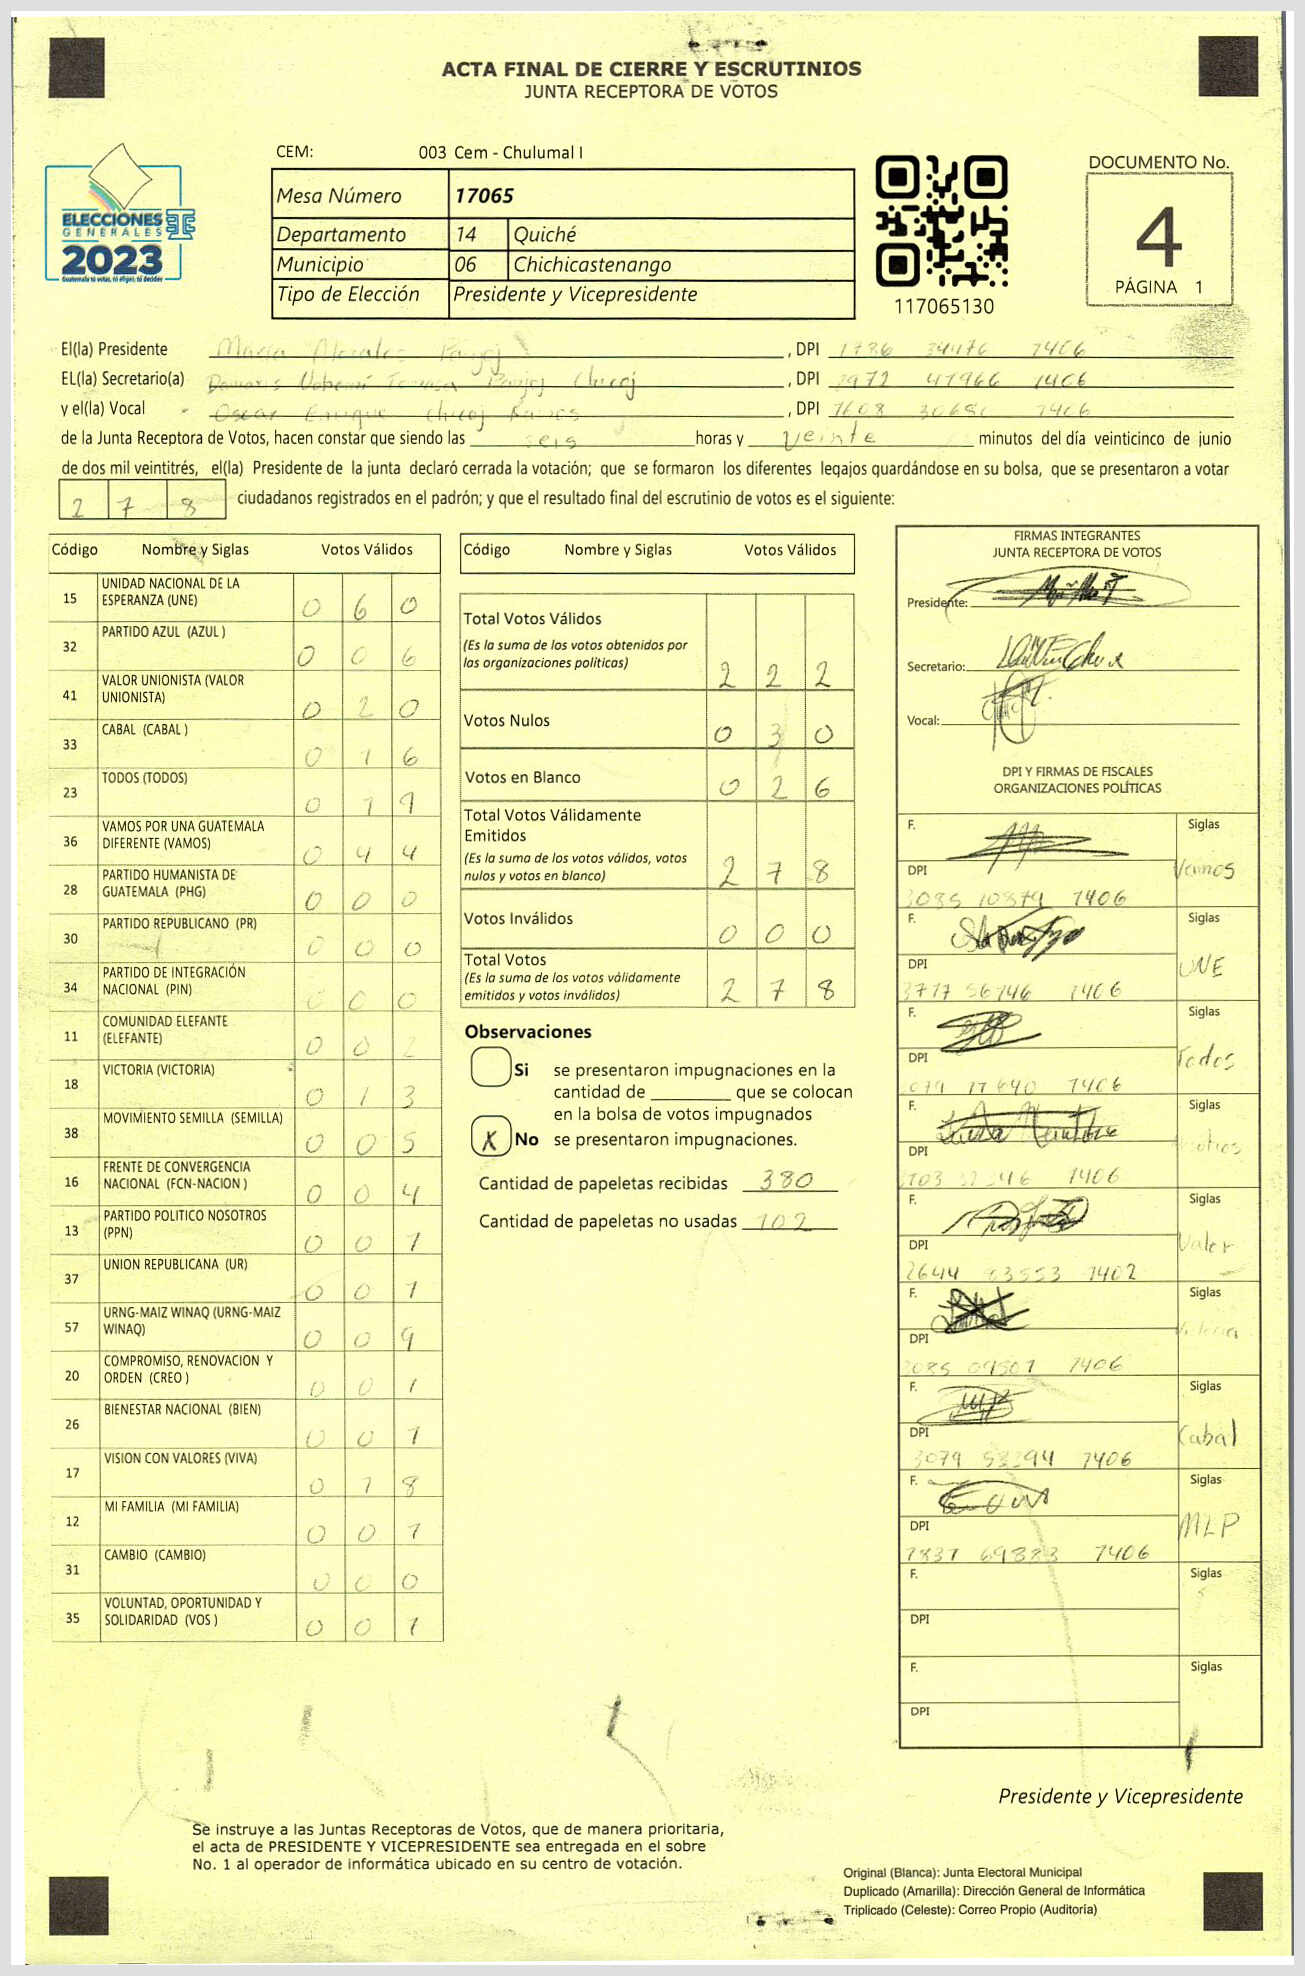 ACTA FINAL DE CIERRE Y ESCRUTINIOS
JUNTA RECEPTORA DE VOTOS
CEM: 003 Cem - Chulumal I
Mesa Número 17065
Departamento 14 Quiché
Municipio 06 Chichicastenango
Tipo de Elección Presidente y Vicepresidente
ELECCIONES
GENERALES
2023
117065130
DOCUMENTO No.
4
PÁGINA 1
El(la) Presidente Maria Morales , DPI 1406
EL(la) Secretario(a) , DPI 47966 1406
y el(la) Vocal Oscar Enrique , DPI 1406
de la Junta Receptora de Votos, hacen constar que siendo las seis horas y veinte minutos del día veinticinco de junio
de dos mil veintitrés, el(la) Presidente de la junta declaró cerrada la votación; que se formaron los diferentes legajos guardándose en su bolsa, que se presentaron a votar
2 7 8 ciudadanos registrados en el padrón; y que el resultado final del escrutinio de votos es el siguiente:
Código Nombre y Siglas Votos Válidos
15 UNIDAD NACIONAL DE LA ESPERANZA (UNE) 0 6 0
32 PARTIDO AZUL (AZUL ) 0 0 6
41 VALOR UNIONISTA (VALOR UNIONISTA) 0 2 0
33 CABAL (CABAL ) 0 1 6
23 TODOS (TODOS) 0 1 9
36 VAMOS POR UNA GUATEMALA DIFERENTE (VAMOS) 0 4 4
28 PARTIDO HUMANISTA DE GUATEMALA (PHG) 0 0 0
30 PARTIDO REPUBLICANO (PR) 0 0 0
34 PARTIDO DE INTEGRACIÓN NACIONAL (PIN) 0 0 0
11 COMUNIDAD ELEFANTE (ELEFANTE) 0 0 2
18 VICTORIA (VICTORIA) 0 1 3
38 MOVIMIENTO SEMILLA (SEMILLA) 0 0 5
16 FRENTE DE CONVERGENCIA NACIONAL (FCN-NACION ) 0 0 4
13 PARTIDO POLITICO NOSOTROS (PPN) 0 0 1
37 UNION REPUBLICANA (UR) 0 0 1
57 URNG-MAIZ WINAQ (URNG-MAIZ WINAQ) 0 0 9
20 COMPROMISO, RENOVACION Y ORDEN (CREO ) 0 0 1
26 BIENESTAR NACIONAL (BIEN) 0 0 1
17 VISION CON VALORES (VIVA) 0 1 8
12 MI FAMILIA (MI FAMILIA) 0 0 1
31 CAMBIO (CAMBIO) 0 0 0
35 VOLUNTAD, OPORTUNIDAD Y SOLIDARIDAD (VOS ) 0 0 1
Código Nombre y Siglas Votos Válidos
Total Votos Válidos
(Es la suma de los votos obtenidos por
las organizaciones políticas) 2 2 2
Votos Nulos 0 3 0
Votos en Blanco 0 2 6
Total Votos Válidamente
Emitidos
(Es la suma de los votos válidos, votos
nulos y votos en blanco) 2 7 8
Votos Inválidos 0 0 0
Total Votos
(Es la suma de los votos válidamente
emitidos y votos inválidos) 2 7 8
Observaciones
Si se presentaron impugnaciones en la
cantidad de ________ que se colocan
en la bolsa de votos impugnados
X No se presentaron impugnaciones.
Cantidad de papeletas recibidas 380
Cantidad de papeletas no usadas 102
FIRMAS INTEGRANTES
JUNTA RECEPTORA DE VOTOS
Presidente:
Secretario:
Vocal:
DPI Y FIRMAS DE FISCALES
ORGANIZACIONES POLÍTICAS
F. Siglas
DPI Vamos
3085 10879 1406
F. Siglas
DPI UNE
1406
F. Siglas
DPI Todos
1406
F. Siglas
DPI
1406
F. Siglas
DPI Valor
2644 83553 1402
F. Siglas
DPI Victoria
1406
F. Siglas
DPI Cabal
3079 53394 1406
F. Siglas
DPI MLP
1406
F. Siglas
DPI
F. Siglas
DPI
Presidente y Vicepresidente
Se instruye a las Juntas Receptoras de Votos, que de manera prioritaria,
el acta de PRESIDENTE Y VICEPRESIDENTE sea entregada en el sobre
No. 1 al operador de informática ubicado en su centro de votación.
Original (Blanca): Junta Electoral Municipal
Duplicado (Amarilla): Dirección General de Informática
Triplicado (Celeste): Correo Propio (Auditoría)